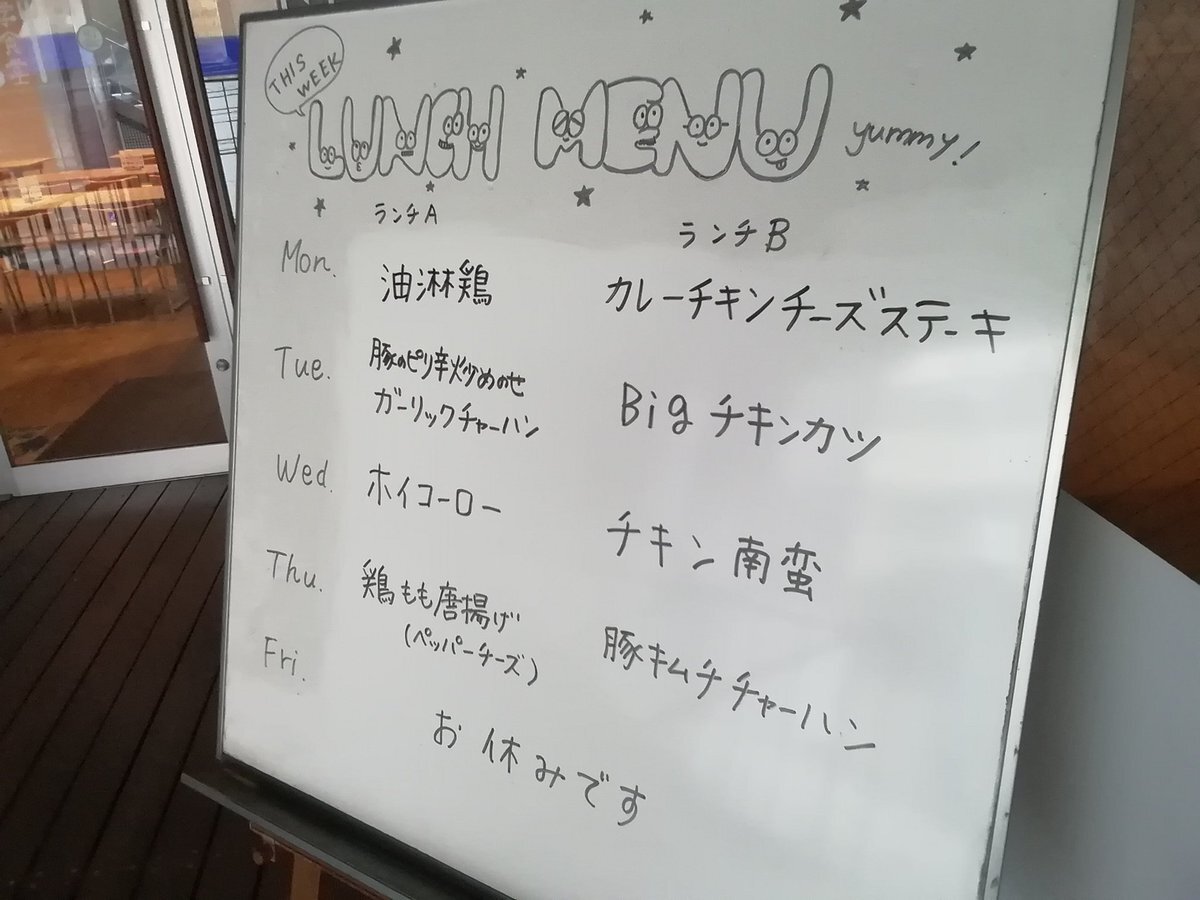 THIS WEEK
LUNCH MENU yummy!
ランチA ランチB
Mon. 油淋鶏 カレーチキンチーズステーキ
Tue. 豚のピリ辛炒めのせ
ガーリックチャーハン Big チキンカツ
Wed. ホイコーロー チキン南蛮
Thu. 鶏もも唐揚げ
(ペッパーチーズ) 豚キムチチャーハン
Fri. お休みです